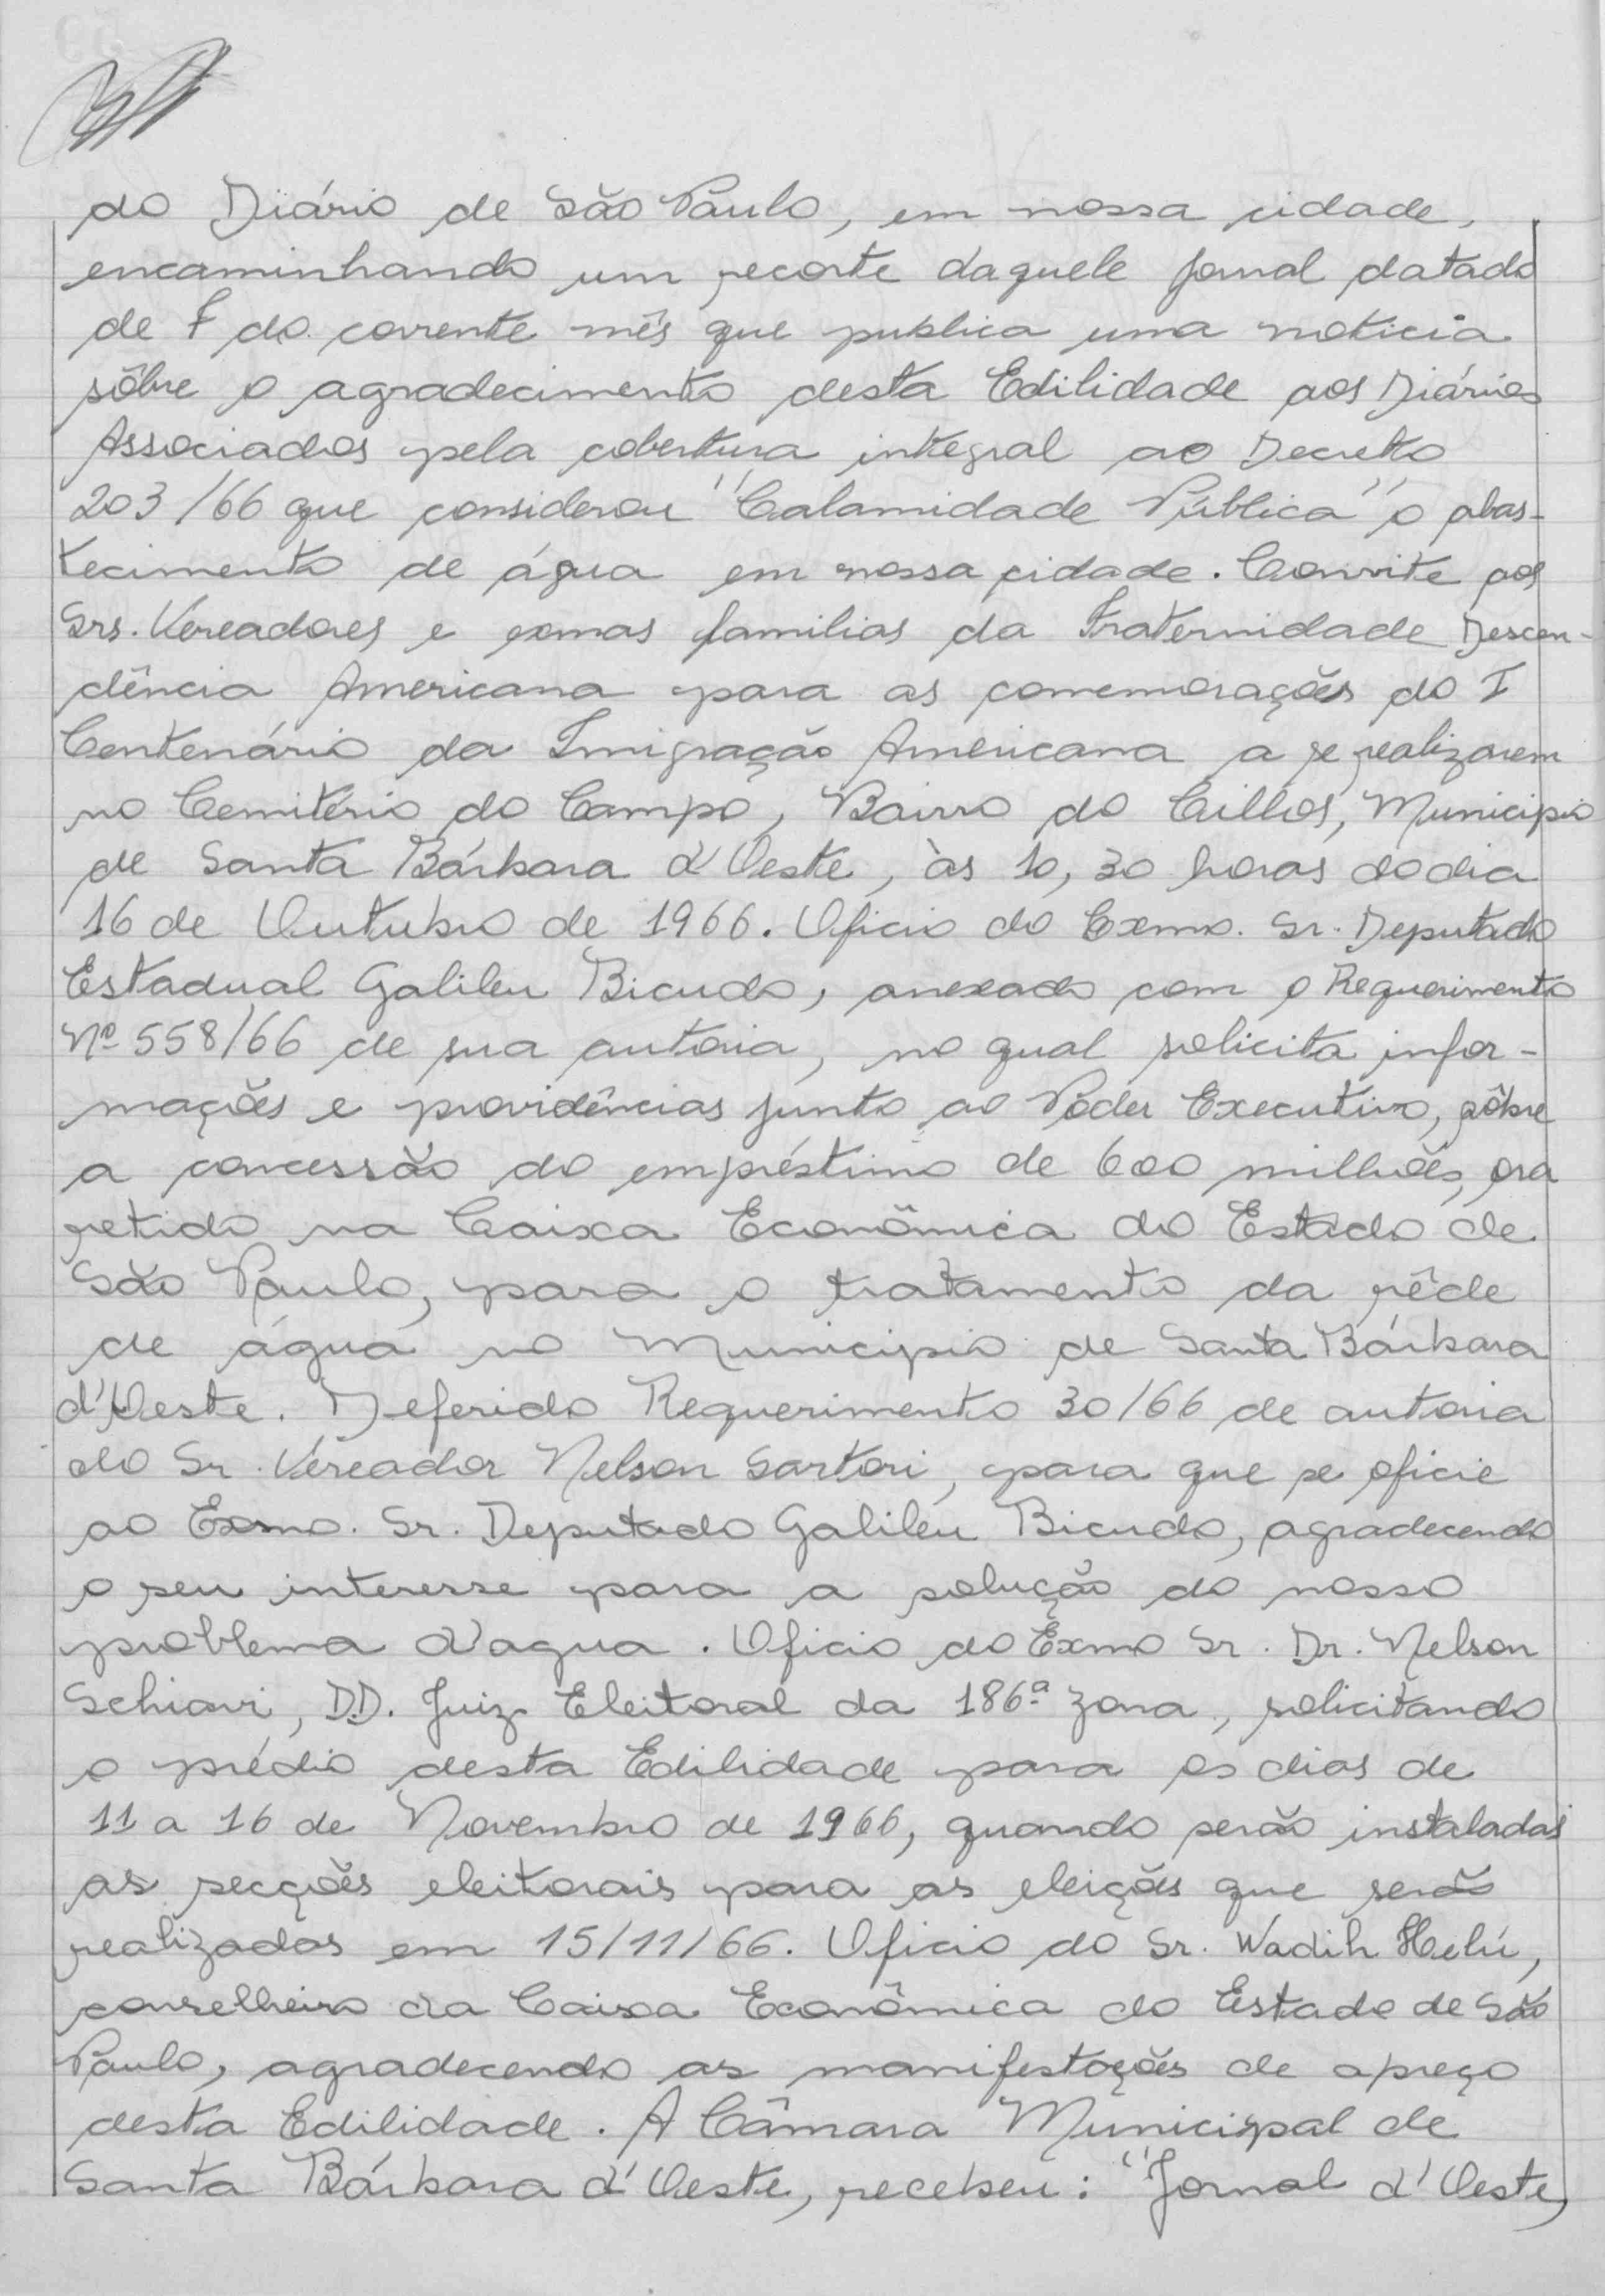 do Diário de São Paulo, em nossa cidade,
encaminhando um recorte daquele jornal datado
de 7 do corrente mês que publica uma noticia
sôbre o agradecimento desta Edilidade aos Diários
Associados pela cobertura integral ao Decreto
203/66 que considerou "Calamidade Pública" o abas-
tecimento de água em nossa cidade. Convite aos
Srs. Vereadores e exmas familias da Fraternidade Descen-
dência Americana para as comemorações do I
Centenário da Imigração Americana a se realizarem
no Cemitério do Campo, Bairro do Cillos, Municipio
de Santa Bárbara d'Oeste, às 10,30 horas do dia
16 de Outubro de 1966. Oficio do Exmo. Sr. Deputado
Estadual Galileu Bicudo, anexado com o Requerimento
Nº 558/66 de sua autoria, no qual solicita infor-
mações e providências junto ao Poder Executivo, sôbre
a concessão do empréstimo de 600 milhões, ora
retido na Caixa Econômica do Estado de
São Paulo, para o tratamento da rêde
de água no Municipio de Santa Bárbara
d'Oeste. Deferido Requerimento 30/66 de autoria
do Sr. Vereador Nelson Sartori, para que se oficie
ao Exmo. Sr. Deputado Galileu Bicudo, agradecendo
o seu interesse para a solução do nosso
problema d'agua. Oficio do Exmo Sr. Dr. Nelson
Schiavi, D.D. Juiz Eleitoral da 186ª zona, solicitando
o prédio desta Edilidade para os dias de
11 a 16 de Novembro de 1966, quando serão instaladas
as secções eleitorais para as eleições que serão
realizadas em 15/11/66. Oficio do Sr. Wadih Helú,
conselheiro da Caixa Econômica do Estado de São
Paulo, agradecendo as manifestações de apreço
desta Edilidade. A Câmara Municipal de
Santa Bárbara d'Oeste, recebeu: "Jornal d'Oeste,